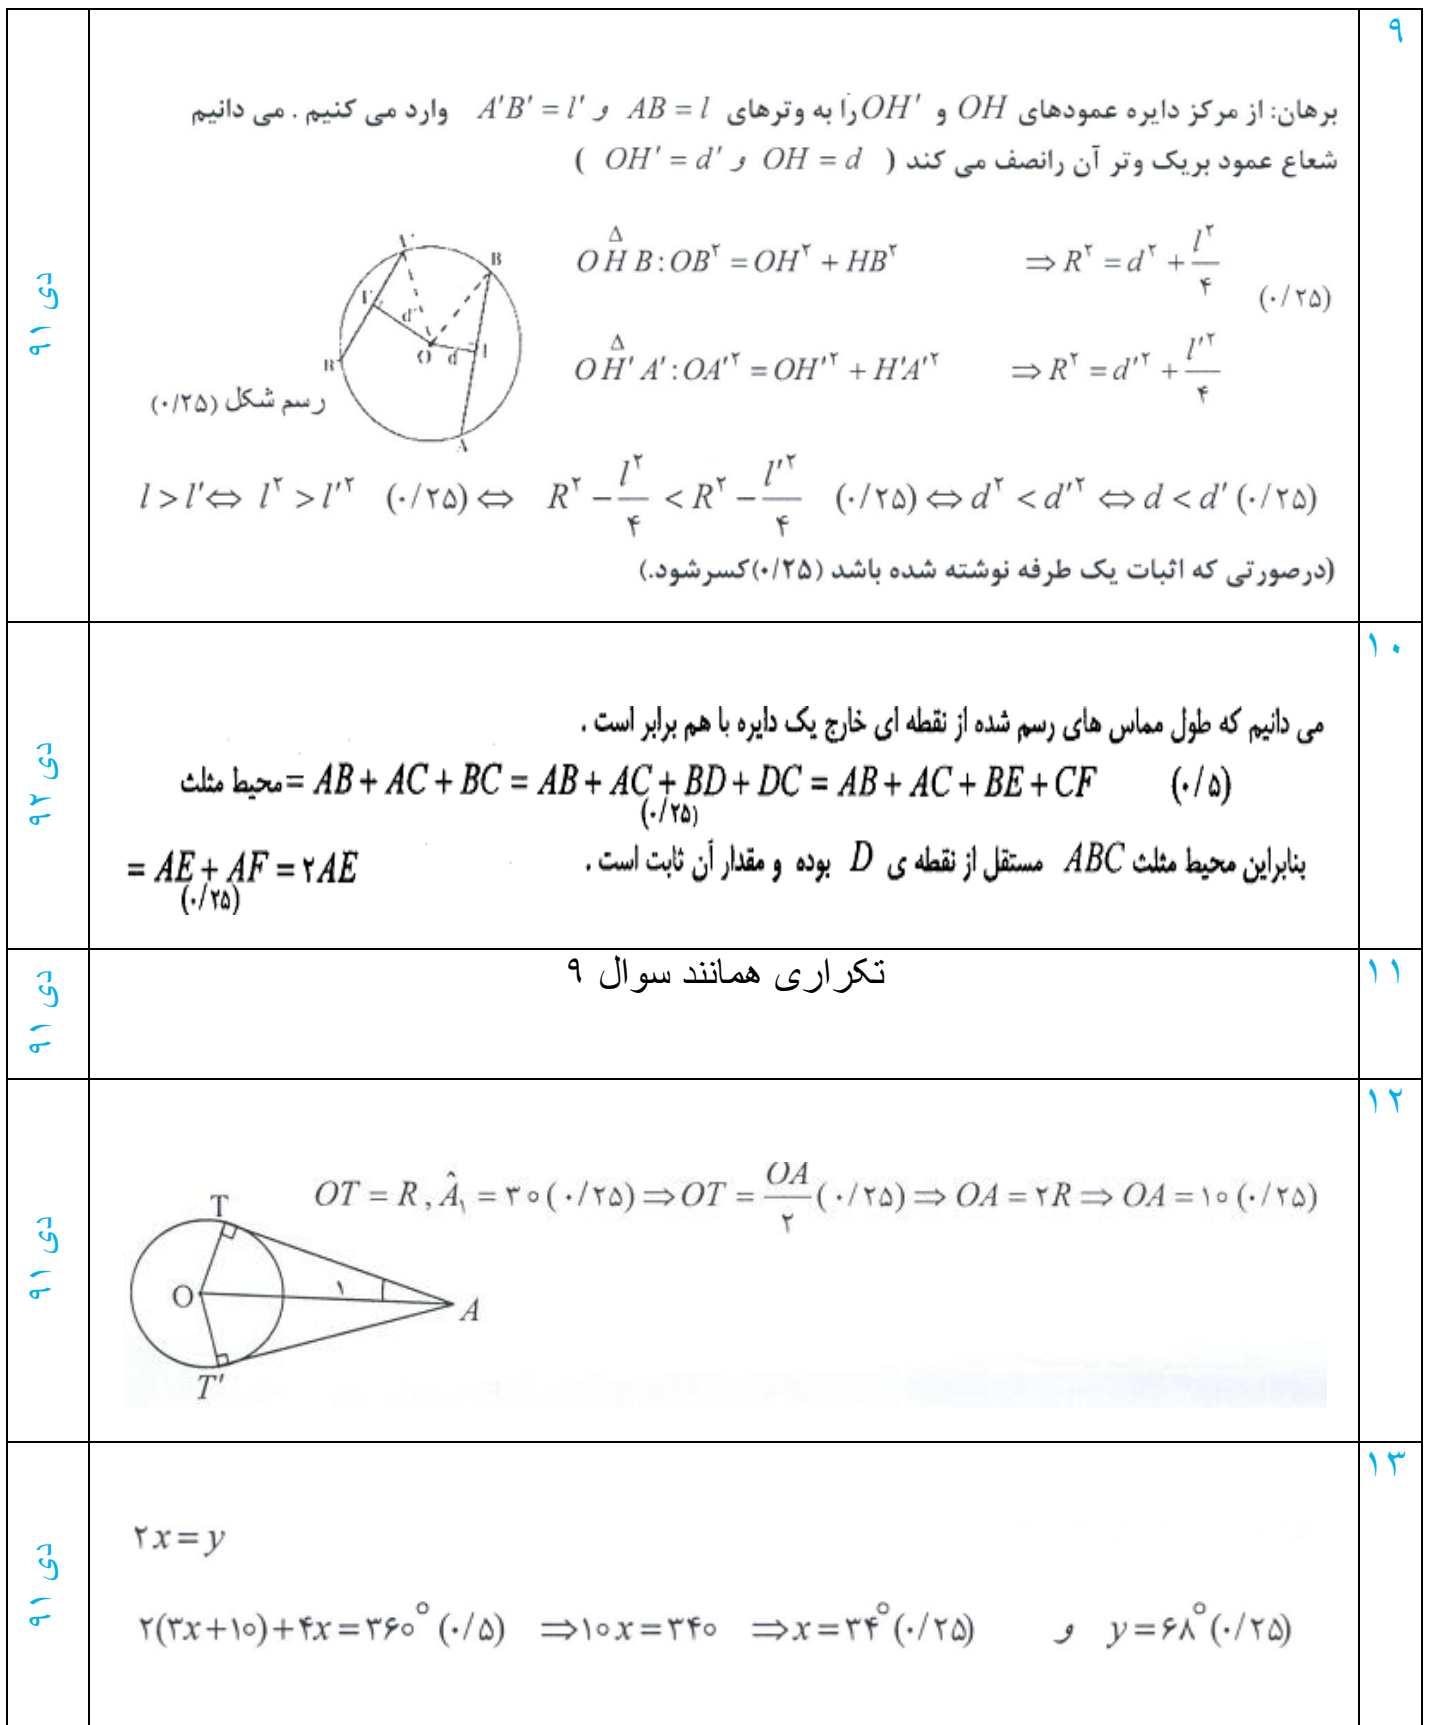 ۹
برهان: از مرکز دایره عمودهای OH و OH' را به وترهای AB = l و A'B' = l' وارد می کنیم . می دانیم
شعاع عمود بریک وتر آن رانصف می کند ( OH = d و OH' = d' )
OHB (Δ) : OB^۲ = OH^۲ + HB^۲ ⇒ R^۲ = d^۲ + l^۲/۴
(۰/۲۵)
OH'A' (Δ) : OA'^۲ = OH'^۲ + H'A'^۲ ⇒ R^۲ = d'^۲ + l'^۲/۴
B
d'
O d
B'
A
رسم شکل (۰/۲۵)
l > l' ⇔ l^۲ > l'^۲ (۰/۲۵) ⇔ R^۲ − l^۲/۴ < R^۲ − l'^۲/۴ (۰/۲۵) ⇔ d^۲ < d'^۲ ⇔ d < d' (۰/۲۵)
(درصورتی که اثبات یک طرفه نوشته شده باشد (۰/۲۵) کسرشود.)
دی ۹۱
۱۰
می دانیم که طول مماس های رسم شده از نقطه ای خارج یک دایره با هم برابر است .
محیط مثلث = AB + AC + BC = AB + AC + BD + DC = AB + AC + BE + CF (۰/۵)
(۰/۲۵)
= AE + AF = ۲AE
(۰/۲۵)
بنابراین محیط مثلث ABC مستقل از نقطه ی D بوده و مقدار آن ثابت است .
دی ۹۲
۱۱
تکراری همانند سوال ۹
دی ۹۱
۱۲
OT = R , Â₁ = ۳۰ (۰/۲۵) ⇒ OT = OA/۲ (۰/۲۵) ⇒ OA = ۲R ⇒ OA = ۱۰ (۰/۲۵)
T
O ۱ A
T'
دی ۹۱
۱۳
۲x = y
۲(۳x+۱۰)+۴x = ۳۶۰° (۰/۵) ⇒ ۱۰x = ۳۴۰ ⇒ x = ۳۴° (۰/۲۵) و y = ۶۸° (۰/۲۵)
دی ۹۱